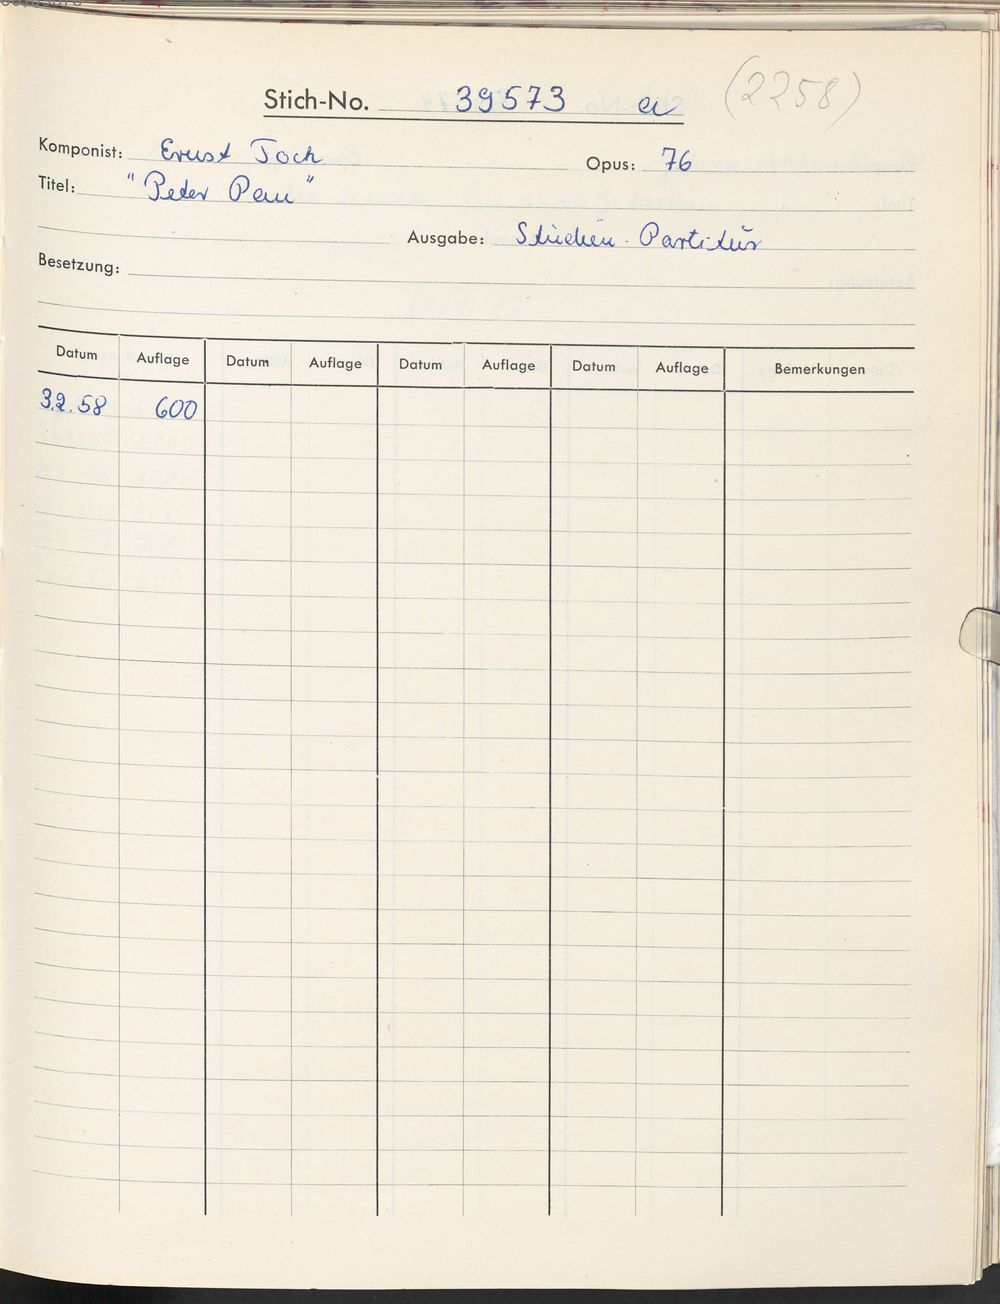 Stich-No. 39573 a (2258)
Komponist: Ernst Toch Opus: 76
Titel: "Peter Pan"
Ausgabe: Studien-Partitur
Besetzung:
Datum Auflage Datum Auflage Datum Auflage Datum Auflage Bemerkungen
3.2.58 600